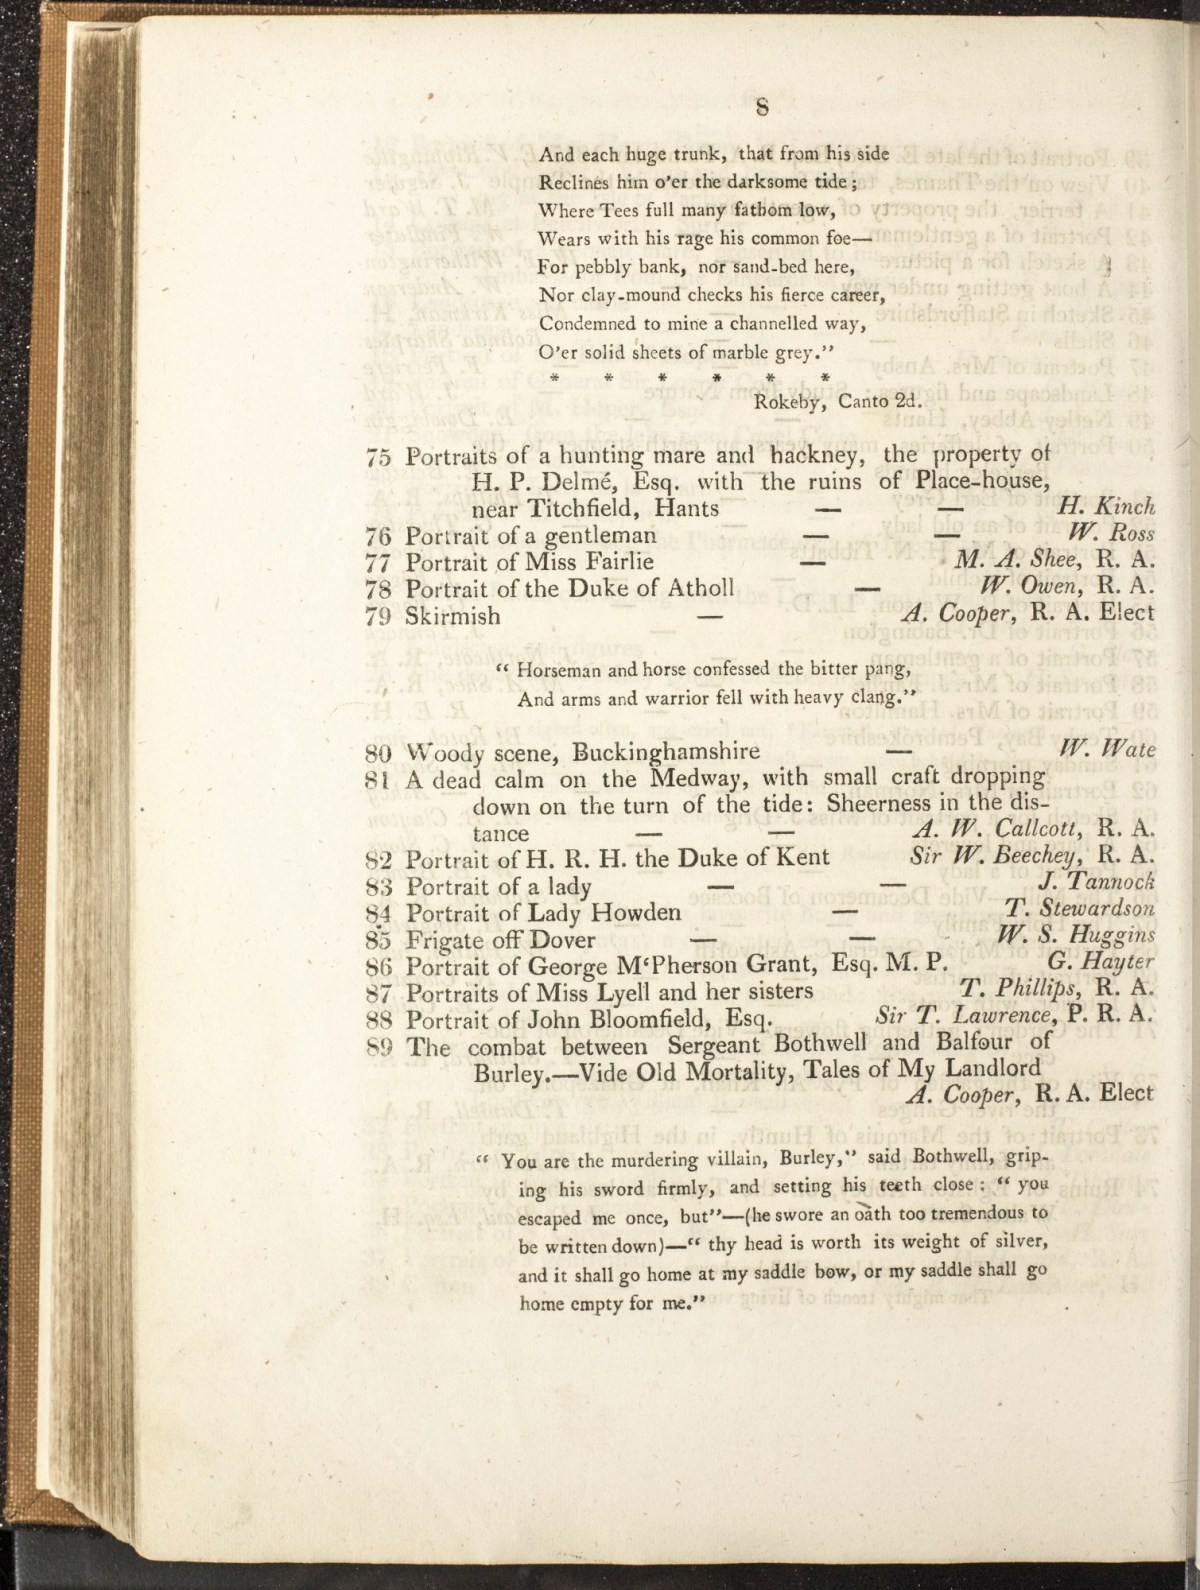 8
And each huge trunk, that from his side
Reclines him o'er the darksome tide;
Where Tees full many fathom low,
Wears with his rage his common foe—
For pebbly bank, nor sand-bed here,
Nor clay-mound checks his fierce career,
Condemned to mine a channelled way,
O'er solid sheets of marble grey."
* * * * * *
Rokeby, Canto 2d.
75 Portraits of a hunting mare and hackney, the property of
H. P. Delmé, Esq. with the ruins of Place-house,
near Titchfield, Hants — — H. Kinch
76 Portrait of a gentleman — — W. Ross
77 Portrait of Miss Fairlie — M. A. Shee, R. A.
78 Portrait of the Duke of Atholl — W. Owen, R. A.
79 Skirmish — A. Cooper, R. A. Elect
" Horseman and horse confessed the bitter pang,
And arms and warrior fell with heavy clang."
80 Woody scene, Buckinghamshire — W. Wate
81 A dead calm on the Medway, with small craft dropping
down on the turn of the tide: Sheerness in the dis-
tance — — A. W. Callcott, R. A.
82 Portrait of H. R. H. the Duke of Kent Sir W. Beechey, R. A.
83 Portrait of a lady — — J. Tannock
84 Portrait of Lady Howden — T. Stewardson
85 Frigate off Dover — — W. S. Huggins
86 Portrait of George M‘Pherson Grant, Esq. M. P. G. Hayter
87 Portraits of Miss Lyell and her sisters T. Phillips, R. A.
88 Portrait of John Bloomfield, Esq. Sir T. Lawrence, P. R. A.
89 The combat between Sergeant Bothwell and Balfour of
Burley.—Vide Old Mortality, Tales of My Landlord
A. Cooper, R. A. Elect
" You are the murdering villain, Burley," said Bothwell, grip-
ing his sword firmly, and setting his teeth close: " you
escaped me once, but"—(he swore an oath too tremendous to
be written down)—" thy head is worth its weight of silver,
and it shall go home at my saddle bow, or my saddle shall go
home empty for me."